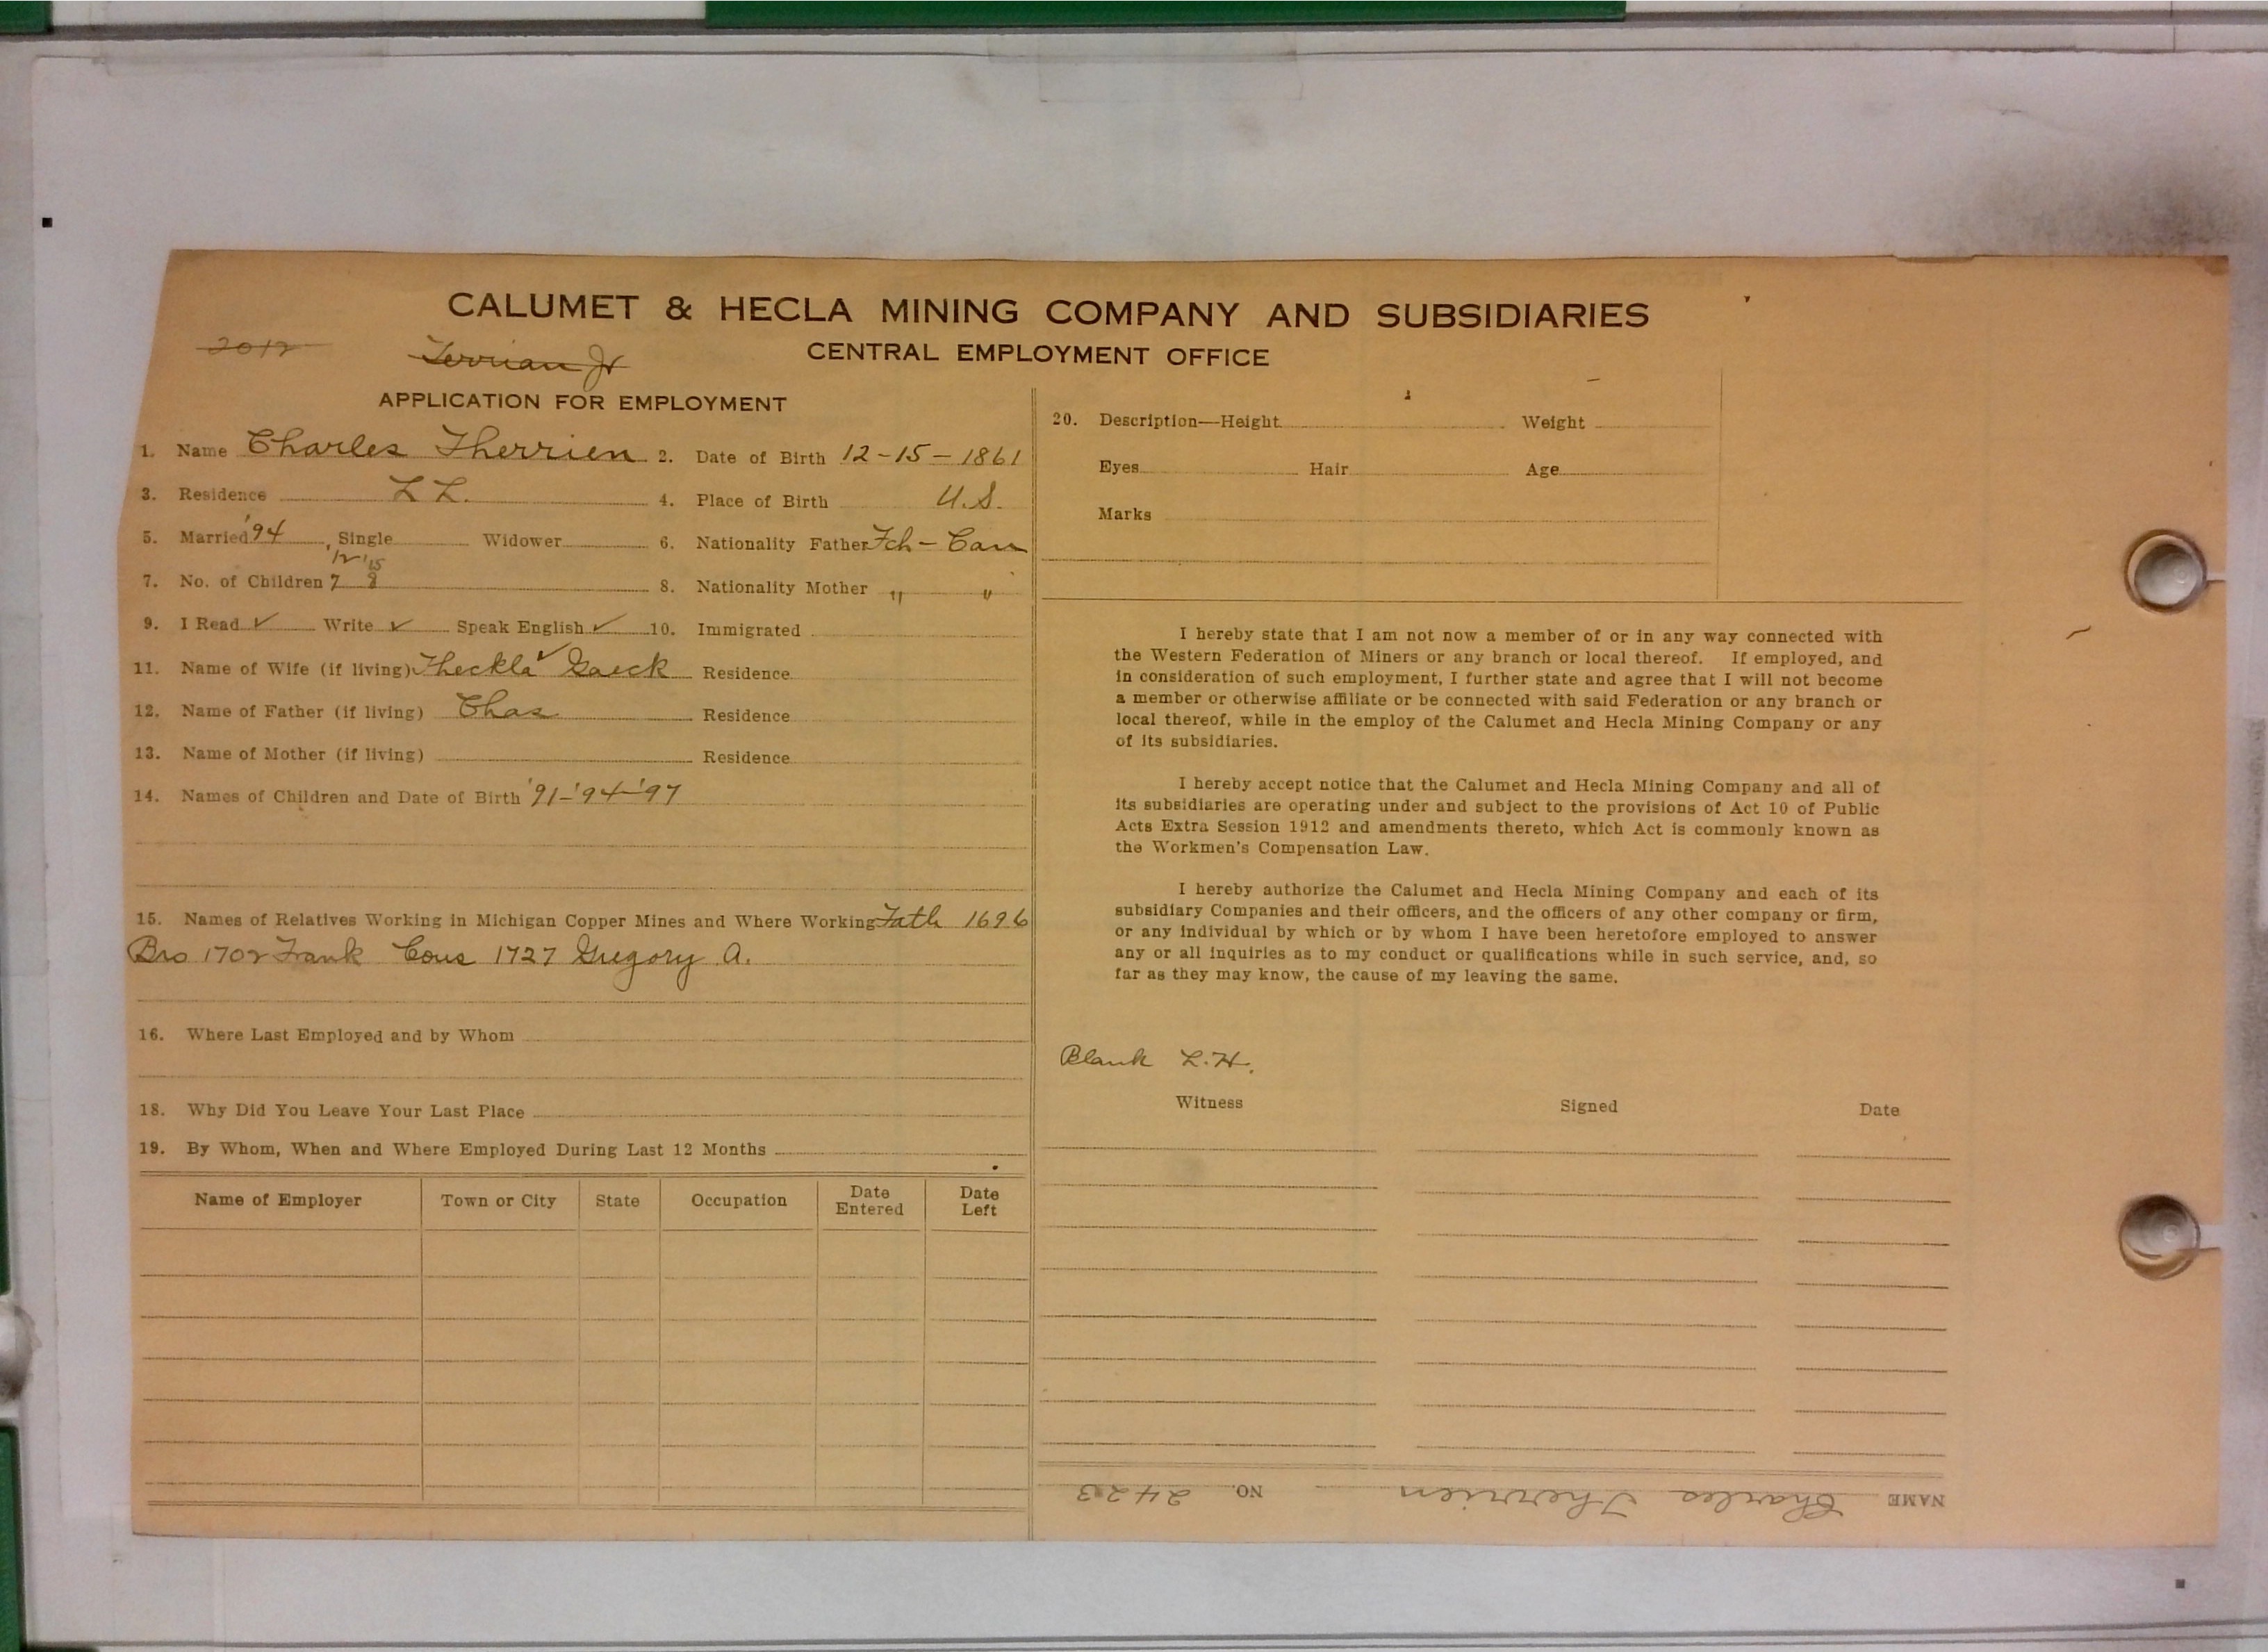 CALUMET & HECLA MINING COMPANY AND SUBSIDIARIES
2012 Terrian Jr
CENTRAL EMPLOYMENT OFFICE
APPLICATION FOR EMPLOYMENT
1. Name Charles Therrien 2. Date of Birth 12-15-1861
3. Residence L L. 4. Place of Birth U.S.
5. Married '94 Single Widower 6. Nationality Father Fch - Can
'12 '15
7. No. of Children 7 8 8. Nationality Mother " "
9. I Read ✓ Write ✓ Speak English ✓ 10. Immigrated
11. Name of Wife (if living) Theckla ✓ Gaeck Residence
12. Name of Father (if living) Chas Residence
13. Name of Mother (if living) Residence
14. Names of Children and Date of Birth '91-'94-'97
15. Names of Relatives Working in Michigan Copper Mines and Where Working Fath 1696
Bro 1702 Frank Cous 1727 Gregory A.
16. Where Last Employed and by Whom
18. Why Did You Leave Your Last Place
19. By Whom, When and Where Employed During Last 12 Months
Name of Employer Town or City State Occupation Date Entered Date Left
20. Description—Height Weight
Eyes Hair Age
Marks
I hereby state that I am not now a member of or in any way connected with
the Western Federation of Miners or any branch or local thereof. If employed, and
in consideration of such employment, I further state and agree that I will not become
a member or otherwise affiliate or be connected with said Federation or any branch or
local thereof, while in the employ of the Calumet and Hecla Mining Company or any
of its subsidiaries.
I hereby accept notice that the Calumet and Hecla Mining Company and all of
its subsidiaries are operating under and subject to the provisions of Act 10 of Public
Acts Extra Session 1912 and amendments thereto, which Act is commonly known as
the Workmen's Compensation Law.
I hereby authorize the Calumet and Hecla Mining Company and each of its
subsidiary Companies and their officers, and the officers of any other company or firm,
or any individual by which or by whom I have been heretofore employed to answer
any or all inquiries as to my conduct or qualifications while in such service, and, so
far as they may know, the cause of my leaving the same.
Blank L.H.
Witness Signed Date
NAME Charles Therrien NO. 2423